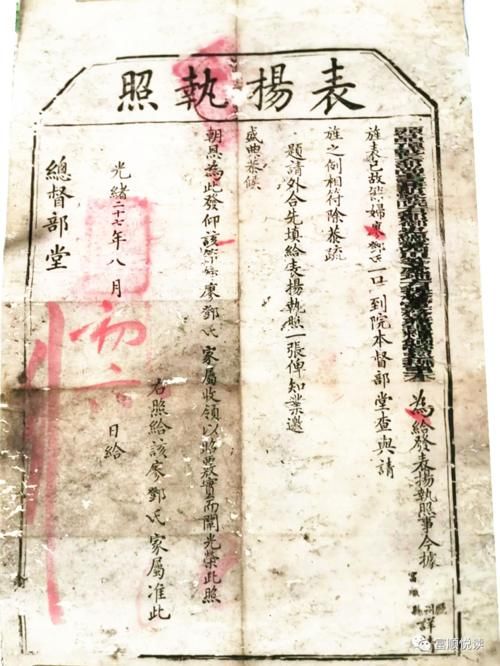 表揚執照
為給發表揚執照事今據
富順縣詳請
旌表已故節婦廖鄧氏一口到院本督部堂查與請
旌之例相符除恭疏
題請外合先填給表揚執照一張俾知業邀
盛典恭候
朝具為此發仰該節婦廖鄧氏家屬收領以昭覈實而闡光榮此照
右照給該廖鄧氏家屬准此
光緒二十七年八月初六日給
總督部堂
富顺悦读